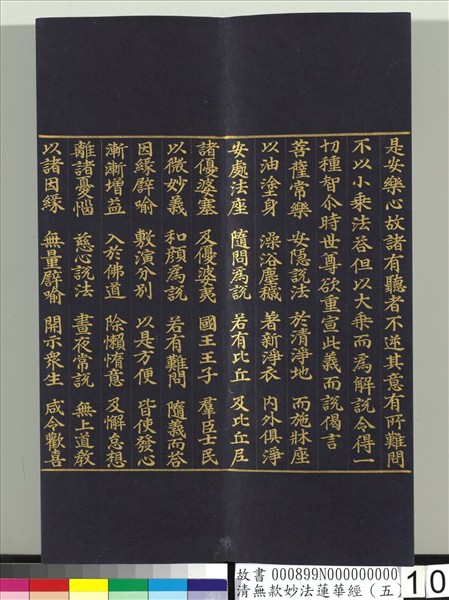 是安樂心故諸有聽者不逆其意有所難問
不以小乘法荅但以大乘而為解說令得一
切種智尒時世尊欲重宣此義而說偈言
菩薩常樂 安隱說法 於清淨地 而施牀座
以油塗身 澡浴塵穢 著新淨衣 內外俱淨
安處法座 隨問為說 若有比丘 及比丘尼
諸優婆塞 及優婆夷 國王王子 羣臣士民
以微妙義 和顏為說 若有難問 隨義而荅
因緣譬喻 敷演分別 以是方便 皆使發心
漸漸增益 入於佛道 除懶惰意 及懈怠想
離諸憂惱 慈心說法 晝夜常說 無上道教
以諸因緣 無量譬喻 開示眾生 咸令歡喜
故書 000899N000000000
清無款妙法蓮華經（五）
10